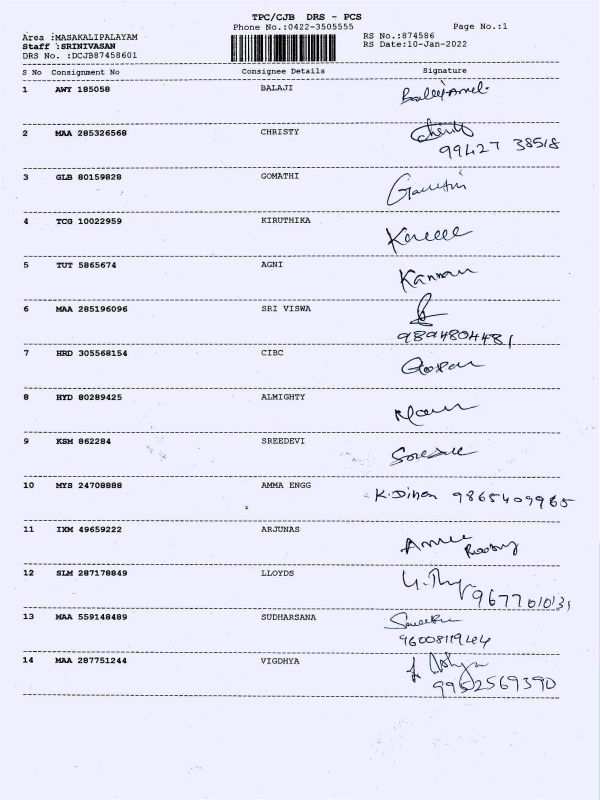 TPC/CJB DRS - PCS
Phone No.:0422-3505555 Page No.:1
Area :MASAKALIPALAYAM RS No.:874586
Staff :SRINIVASAN RS Date:10-Jan-2022
DRS No. :DCJB87458601
S No Consignment No Consignee Details Signature
1 AWY 185058 BALAJI
2 MAA 285326568 CHRISTY
99427 38518
3 GLB 80159828 GOMATHI
4 TCG 10022959 KIRUTHIKA
5 TUT 5865674 AGNI Kannan
6 MAA 285196096 SRI VISWA
9894804481
7 HRD 305568154 CIBC
8 HYD 80289425 ALMIGHTY
9 KSM 862284 SREEDEVI
10 MYS 24708888 AMMA ENGG 9865409965
11 IXM 49659222 ARJUNAS
12 SLM 287178849 LLOYDS
9677010131
13 MAA 559148489 SUDHARSANA
9600811944
14 MAA 287751244 VIGDHYA
9952569390